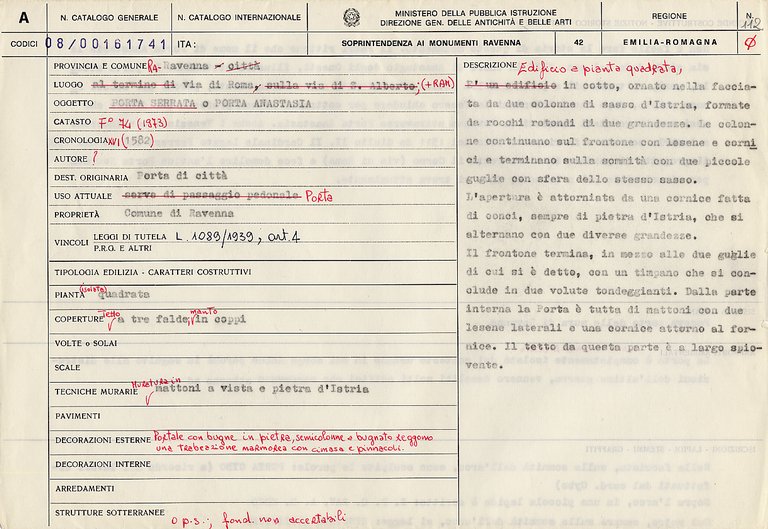 A
N. CATALOGO GENERALE
N. CATALOGO INTERNAZIONALE
MINISTERO DELLA PUBBLICA ISTRUZIONE
DIREZIONE GEN. DELLE ANTICHITÀ E BELLE ARTI
REGIONE
N.
112
CODICI 08/00161741 ITA:
SOPRINTENDENZA AI MONUMENTI RAVENNA
42
EMILIA-ROMAGNA
PROVINCIA E COMUNE RA- Ravenna - città
LUOGO al termine di via di Roma, sulla via di S. Alberto; (+RAM)
OGGETTO PORTA SERRATA o PORTA ANASTASIA
CATASTO F° 74 (1873)
CRONOLOGIA XVI (1582)
AUTORE ?
DEST. ORIGINARIA Porta di città
USO ATTUALE serve di passaggio pedonale Porta
PROPRIETÀ Comune di Ravenna
VINCOLI LEGGI DI TUTELA L. 1089/1939, art. 4
P.R.G. E ALTRI
TIPOLOGIA EDILIZIA - CARATTERI COSTRUTTIVI
PIANTA (isolata) quadrata
COPERTURE Tetto a tre falde, manto in coppi
VOLTE o SOLAI
SCALE
TECNICHE MURARIE Muratura in mattoni a vista e pietra d'Istria
PAVIMENTI
DECORAZIONI ESTERNE Portale con bugne in pietra, semicolonne e bugnato reggono
una trabeazione marmorea con cimasa e pinnacoli.
DECORAZIONI INTERNE
ARREDAMENTI
STRUTTURE SOTTERRANEE o p.s.; fond. non accertabili
DESCRIZIONE Edificio a pianta quadrata,
E' un edificio in cotto, ornato nella faccia-
ta da due colonne di sasso d'Istria, formate
da rocchi rotondi di due grandezze. Le colon-
ne continuano sul frontone con lesene e corni
ci e terminano sulla sommità con due piccole
guglie con sfera dello stesso sasso.
L'apertura è attorniata da una cornice fatta
di conci, sempre di pietra d'Istria, che si
alternano con due diverse grandezze.
Il frontone termina, in mezzo alle due guglie
di cui si è detto, con un timpano che si con-
clude in due volute tondeggianti. Dalla parte
interna la Porta è tutta di mattoni con due
lesene laterali e una cornice attorno al for-
nice. Il tetto da questa parte è a largo spio-
vente.